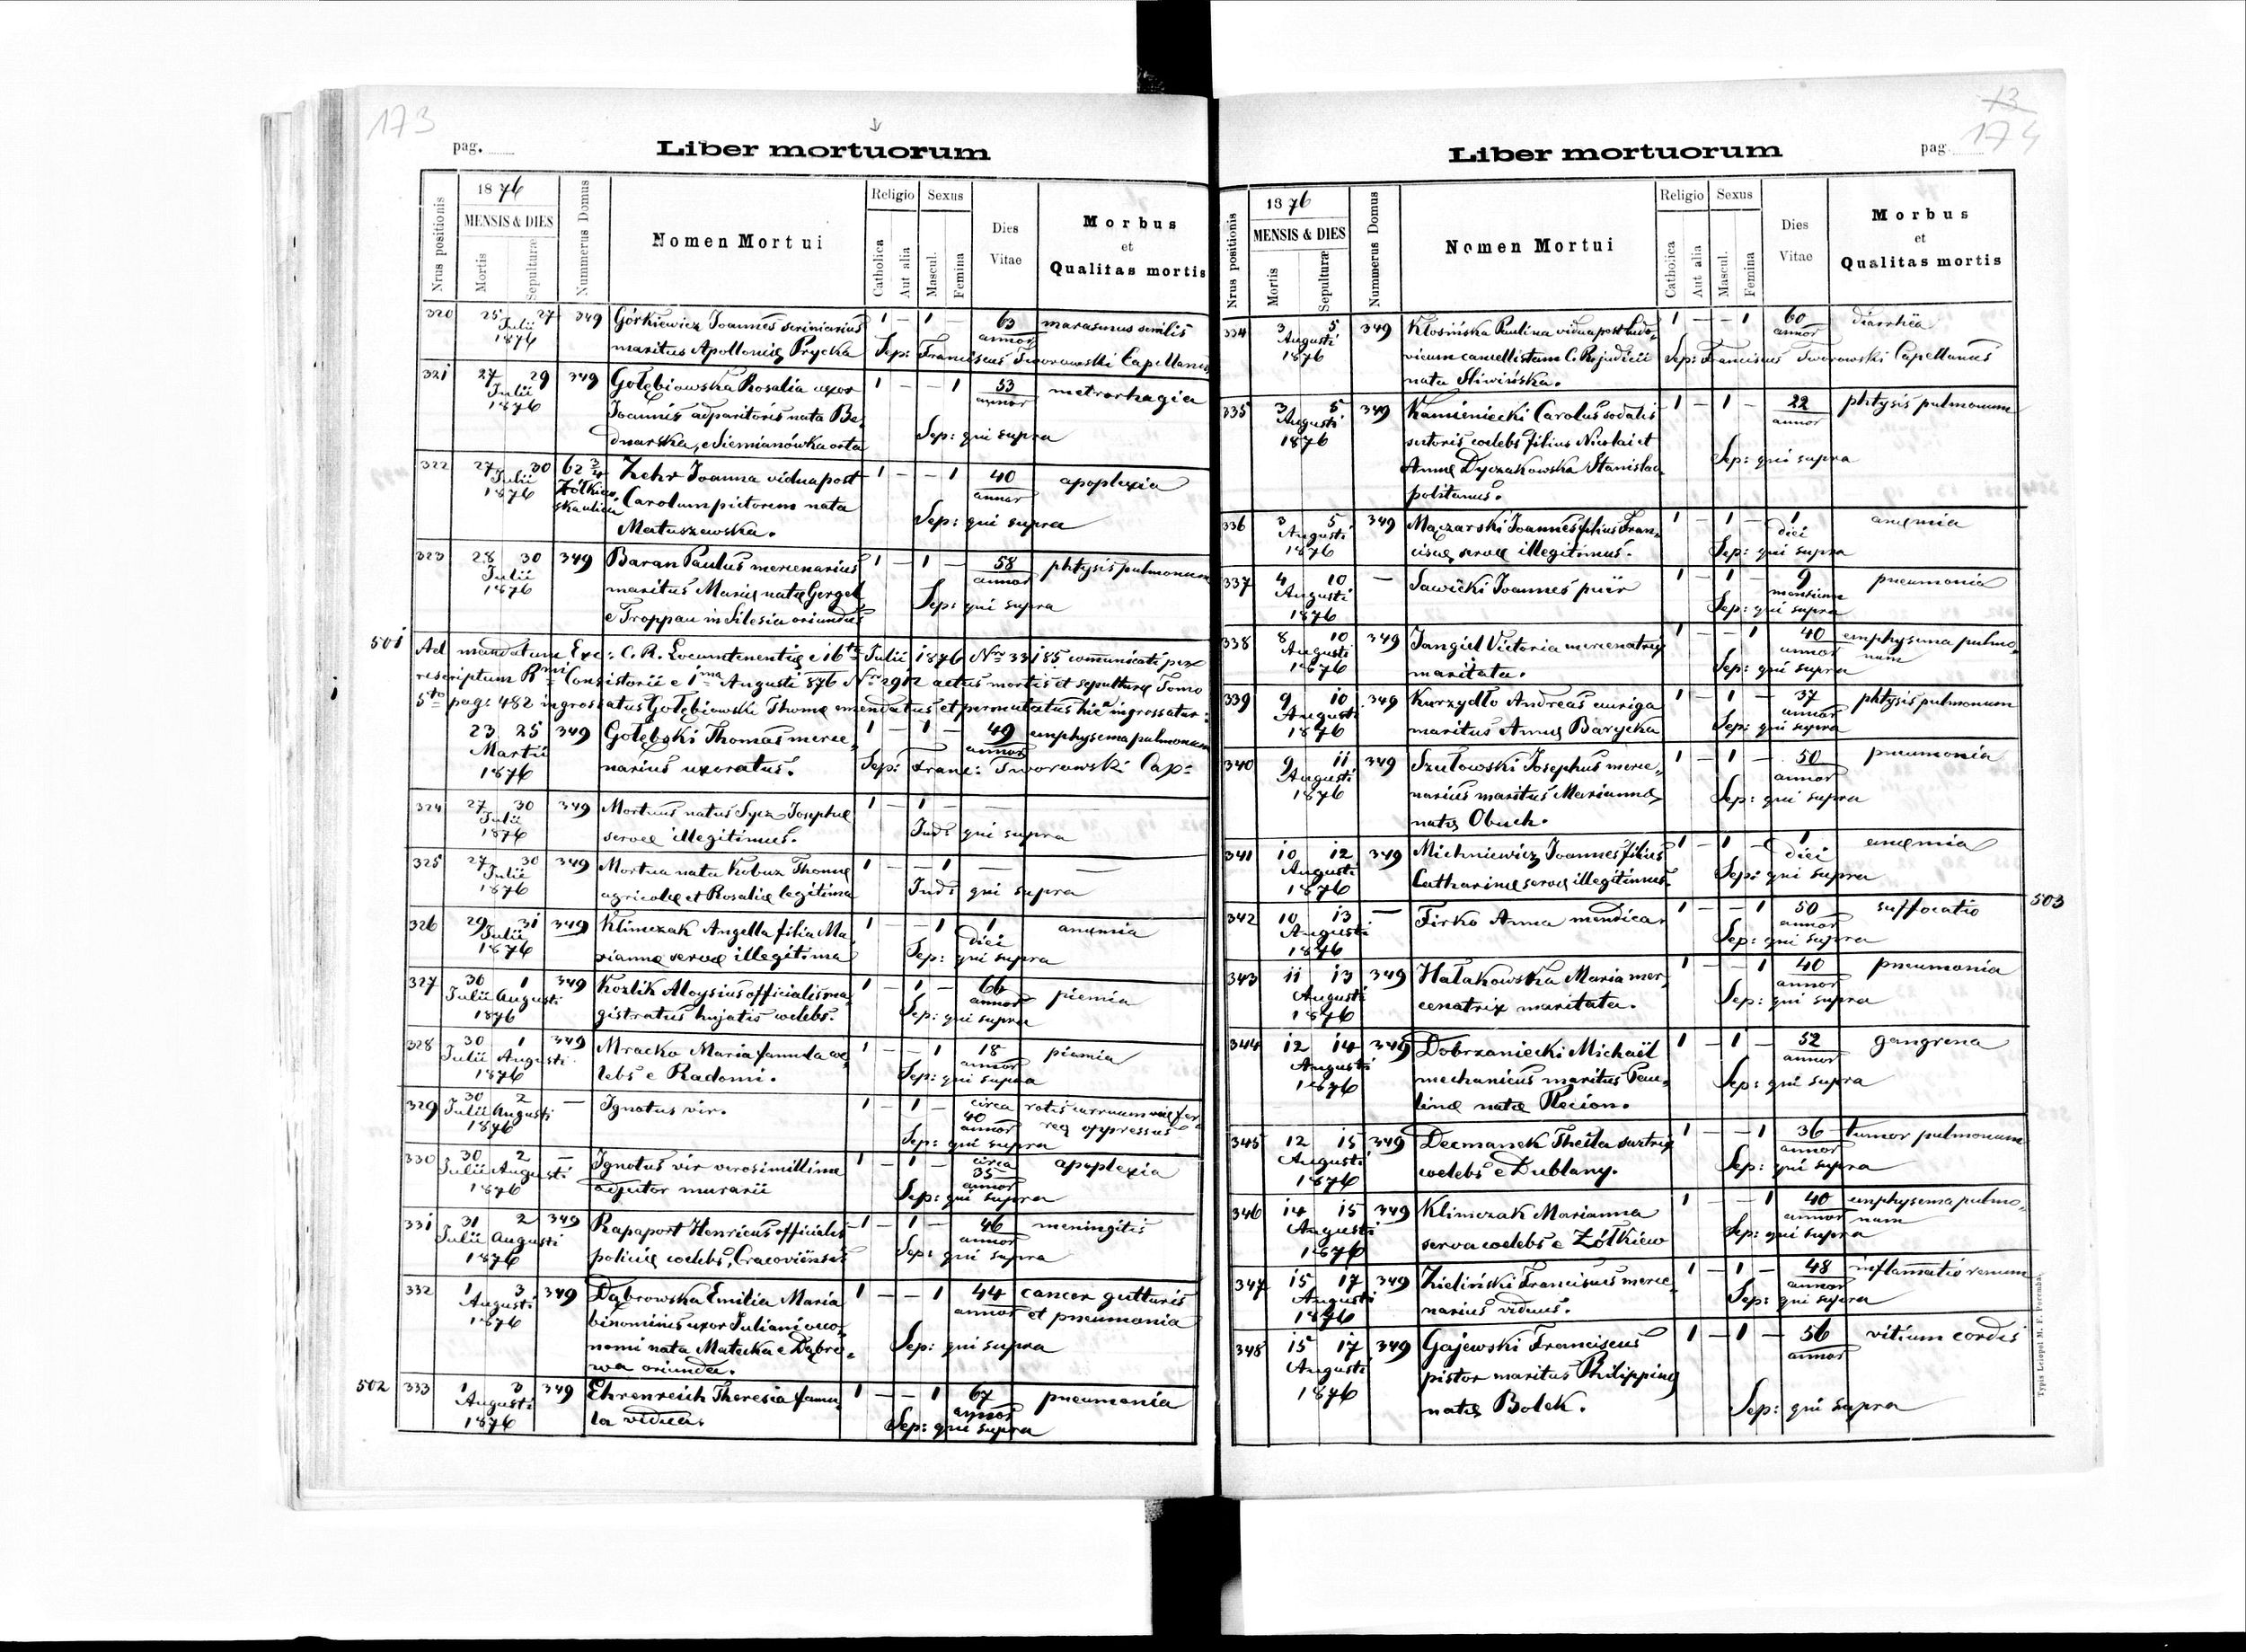 173
pag.
Liber mortuorum
Nrus positionis
1876
MENSIS & DIES
Mortis
Sepulturæ
Nummerus Domus
Nomen Mortui
Religio
Catholica
Aut alia
Sexus
Mascul.
Femina
Dies
Vitae
Morbus
et
Qualitas mortis
320 25 27 349 Górkiewicz Joannes scriniarius 1 – 1 – 63 marasmus senilis
Julii annor
1876 maritus Apolloniæ Prycka Sep: Franciscus Tworowski Capellanus
321 27 29 349 Gołębiowska Rosalia uxor 1 – – 1 53 metrorhagia
Julii Joannis apparitoris nata Be- annor
1876 dnarska, e Siemianówka orta Sep: qui supra
322 27 30 62 3/4 Zehr Joanna vidua post 1 – – 1 40 apoplexia
Julii Żółkiew- Carolum pictorem nata annor
1876 ska ulica Matuszewska. Sep: qui supra
323 28 30 349 Baran Paulus mercenarius 1 – 1 – 58 phtysis pulmonum
Julii maritus Mariæ natæ Gergel annor
1876 e Troppau in Silesia oriundus Sep: qui supra
501 Ad mandatum Exc: C. R. Locumtenentiæ e 16ta Julii 1876 Nro 33185 communicati pro
rescriptum Rmi Consistorii e 1ma Augusti 876 Nro 2912 actus mortis et sepulturæ Tomo
5to pag: 482 ingrossatus Gołębiowski Thomæ emendatus et permutatus hic ingrossatur:
23 25 349 Gołębski Thomas merce- 1 – 1 – 49 emphysema pulmonum
Martii annor
1876 narius uxoratus. Sep: Franc: Tworowski Cap:
324 27 30 349 Mortuus natus Sycz Josephæ 1 – 1 – – –
Julii
1876 servæ illegitimus. Inds qui supra
325 27 30 349 Mortua nata Kobuz Thomæ 1 – – 1 – –
Julii
1876 agricolæ et Rosaliæ legitima Inds qui supra
326 29 31 349 Klimczak Angella filia Ma- 1 – – 1 1 anæmia
Julii diei
1876 riannæ servæ illegitima Sep: qui supra
327 30 1 349 Kozlik Aloysius officialis ma- 1 – 1 – 66 piemia
Julii Augusti annor
1876 gistratus hujatis coelebs. Sep: qui supra
328 30 1 349 Mracko Maria famula coe- 1 – – 1 18 piemia
Julii Augusti annor
1876 lebs e Radomi. Sep: qui supra
329 30 2 – Ignotus vir. 1 – 1 – circa rotis curruum viæ fer-
Julii Augusti 40 annor reæ oppressus
1876 Sep: qui supra
330 30 2 – Ignotus vir verosimillime 1 – 1 – circa apoplexia
Julii Augusti 35 annor
1876 adjutor murarii Sep: qui supra
331 31 2 349 Rapaport Henricus officialis 1 – 1 – 46 meningitis
Julii Augusti annor
1876 policiæ coelebs, Cracoviensis Sep: qui supra
332 1 3 349 Dąbrowska Emilia Maria 1 – – 1 44 cancer gutturis
Augusti binominis uxor Juliani oeco- annor et pneumonia
1876 nomi nata Matecka e Dąbro- Sep: qui supra
wa oriunda.
502 333 1 3 349 Ehrenreich Theresia famu- 1 – – 1 67 pneumonia
Augusti annor
1876 la vidua. Sep: qui supra
73
174
Liber mortuorum
pag
Nrus positionis
1876
MENSIS & DIES
Mortis
Sepulturæ
Nummerus Domus
Nomen Mortui
Religio
Catholica
Aut alia
Sexus
Mascul.
Femina
Dies
Vitae
Morbus
et
Qualitas mortis
334 3 5 349 Kłosińska Paulina vidua post Ludo- 1 – – 1 60 diarrhëa
Augusti annor
1876 vicum cancellistam C. R. judicii Sep: Franciscus Tworowski Capellanus
nata Sliwińska.
335 3 5 349 Kamieniecki Carolus sodalis 1 – 1 – 22 phtysis pulmonum
Augusti sutoris, coelebs filius Nicolai et annor
1876 Annæ Dyczakowska Stanislao- Sep: qui supra
politanus.
336 3 5 349 Mączarski Joannes filius Fran- 1 – 1 – 1 anæmia
Augusti diei
1876 ciscæ servæ illegitimus. Sep: qui supra
337 4 10 – Sawicki Joannes puër 1 – 1 – 9 pneumonia
Augusti mensium
1876 Sep: qui supra
338 8 10 349 Jangiel Victoria mercenatrix 1 – – 1 40 emphysema pulmo-
Augusti annor num
1876 maritata. Sep: qui supra
339 9 10 349 Kurzydło Andreas auriga 1 – 1 – 37 phtysis pulmonum
Augusti annor
1876 maritus Annæ Barycka Sep: qui supra
340 9 11 349 Szułowski Josephus merce- 1 – 1 – 50 pneumonia
Augusti narius maritus Mariannæ annor
1876 natæ Obuch. Sep: qui supra
341 10 12 349 Michniewicz Joannes filius 1 – 1 – 1 anæmia
Augusti diei
1876 Catharinæ servæ illegitimus. Sep: qui supra
342 10 13 – Firko Anna mendica. 1 – – 1 50 suffocatio 503
Augusti annor
1876 Sep: qui supra
343 11 13 349 Hałakowska Maria mer- 1 – – 1 40 pneumonia
Augusti annor
1876 cenatrix maritata. Sep: qui supra
344 12 14 349 Dobrzaniecki Michaël 1 – 1 – 52 gangrena
Augusti mechanicus maritus Pau- annor
1876 linæ natæ Plecion. Sep: qui supra
345 12 15 349 Decmanek Thecla sartrix 1 – – 1 36 tumor pulmonum
Augusti annor
1876 coelebs e Dublany. Sep: qui supra
346 14 15 349 Klimczak Marianna 1 – – 1 40 emphysema pulmo-
Augusti annor num
1876 serva coelebs e Żółkiew Sep: qui supra
347 15 17 349 Zieliński Franciscus merce- 1 – 1 – 48 inflamatio renum
Augusti annor
1876 narius viduus. Sep: qui supra
348 15 17 349 Gajewski Franciscus 1 – 1 – 56 vitium cordis
Augusti pistor maritus Philippinæ annor
1876 natæ Bolek. Sep: qui supra
Typis Leiopol M. F. Poremba.